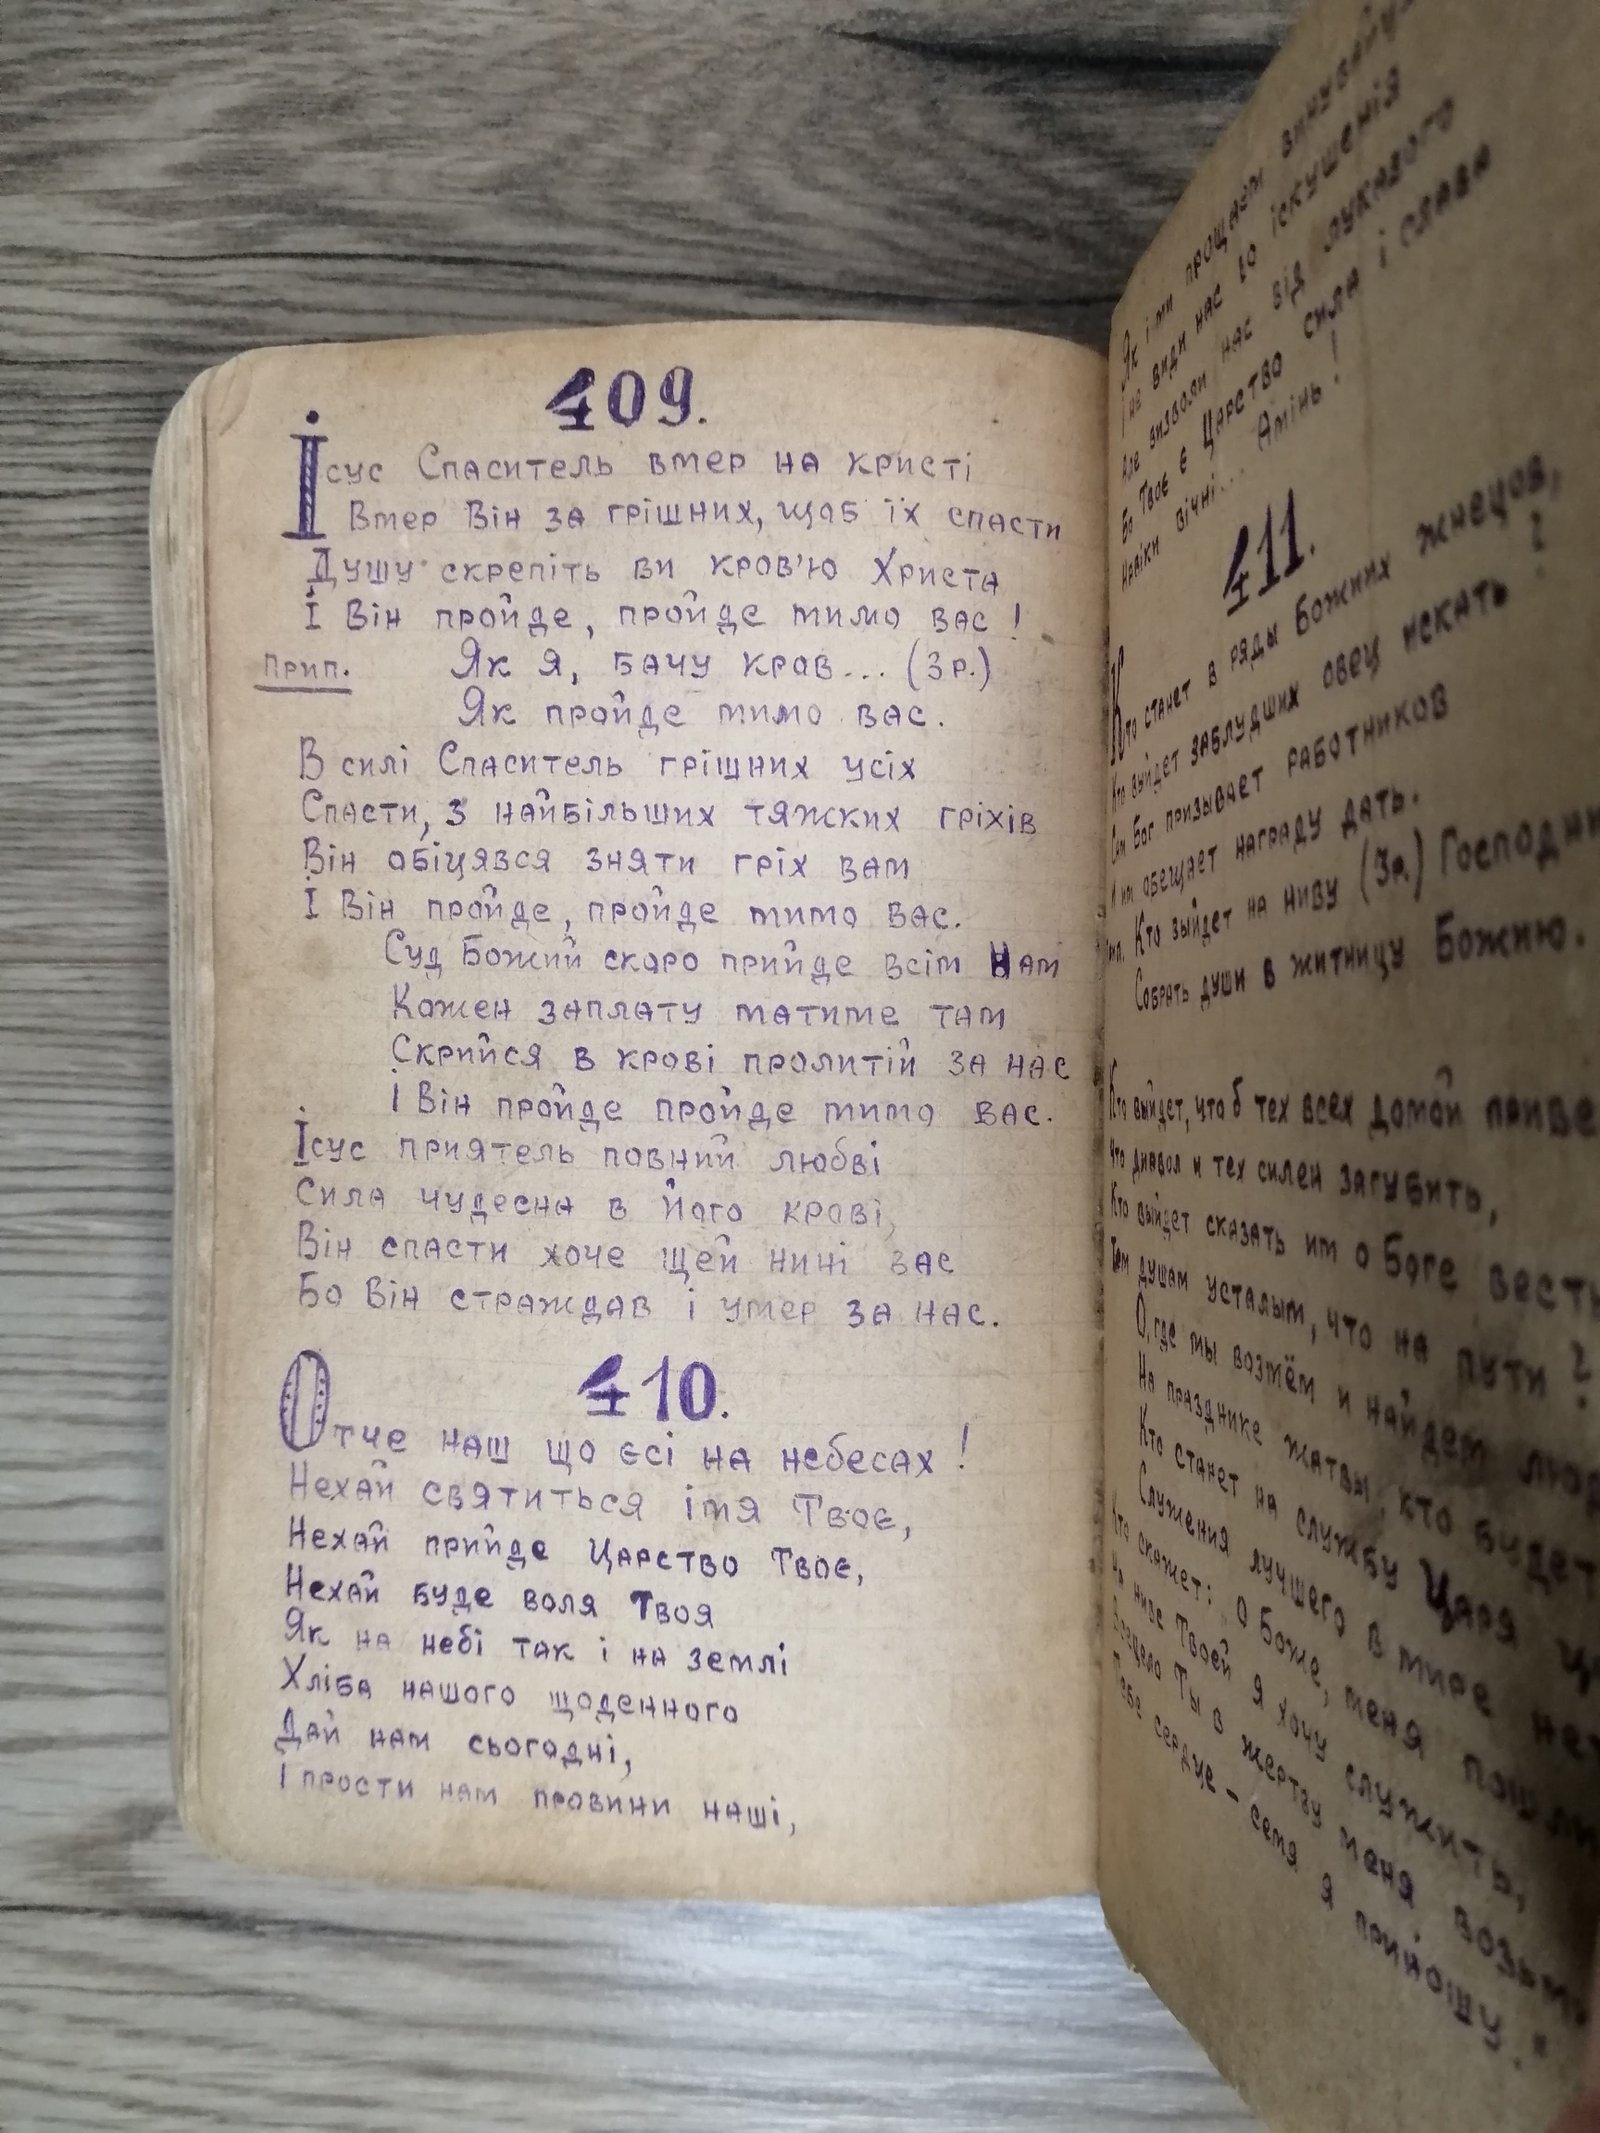 409.
Ісус Спаситель вмер на кристі
Вмер Він за грішних, щоб їх спасти
Душу скрепіть ви кров'ю Христа
І Він пройде, пройде мимо вас!
Прип. Як я, бачу кров... (3 р.)
Як пройде мимо вас.
В силі Спаситель грішних усіх
Спасти, з найбільших тяжких гріхів
Він обіцявся зняти гріх вам
І Він пройде, пройде мимо вас.
Суд Божий скоро прийде всім нам
Кожен заплату матиме там
Скрийся в крові пролитій за нас
І Він пройде пройде мимо вас.
Ісус приятель повний любві
Сила чудесна в Його крові,
Він спасти хоче щей нині вас
Бо Він страждав і умер за нас.
410.
Отче наш що єсі на небесах!
Нехай святиться імя Твоє,
Нехай прийде Царство Твоє,
Нехай буде воля Твоя
Як на небі так і на землі
Хліба нашого щоденного
Дай нам сьогодні,
І прости нам провини наші,
Як і ми прощаєм
І не види нас во іскушенія
Але визволи нас від лукавого
Бо Твоє є Царство сила і слава
Навіки вічні... Амінь!
411.
Кто станет в ряды Божиих жнецов,
Кто выйдет заблудших овец искать?
Сам Бог призывает работников
И им обещает награду дать.
Кто выйдет на ниву (3 р.)
Собрать души в житницу Божию.
Кто выйдет, чтоб тех всех домой
Что диавол и тех силен загубить,
Кто выйдет сказать им о Боге весть
Тем душам усталым, что на пути?
О, где мы возмём и найдем
На празднике жатвы, кто будет
Кто станет на службу Царя
Служения лучшего в мире нет
Кто скажет: О Боже, меня пошли
На ниве Твоей я хочу служить,
Всецело Ты в жертву меня возьми
Тебе сердце - семя я приношу."